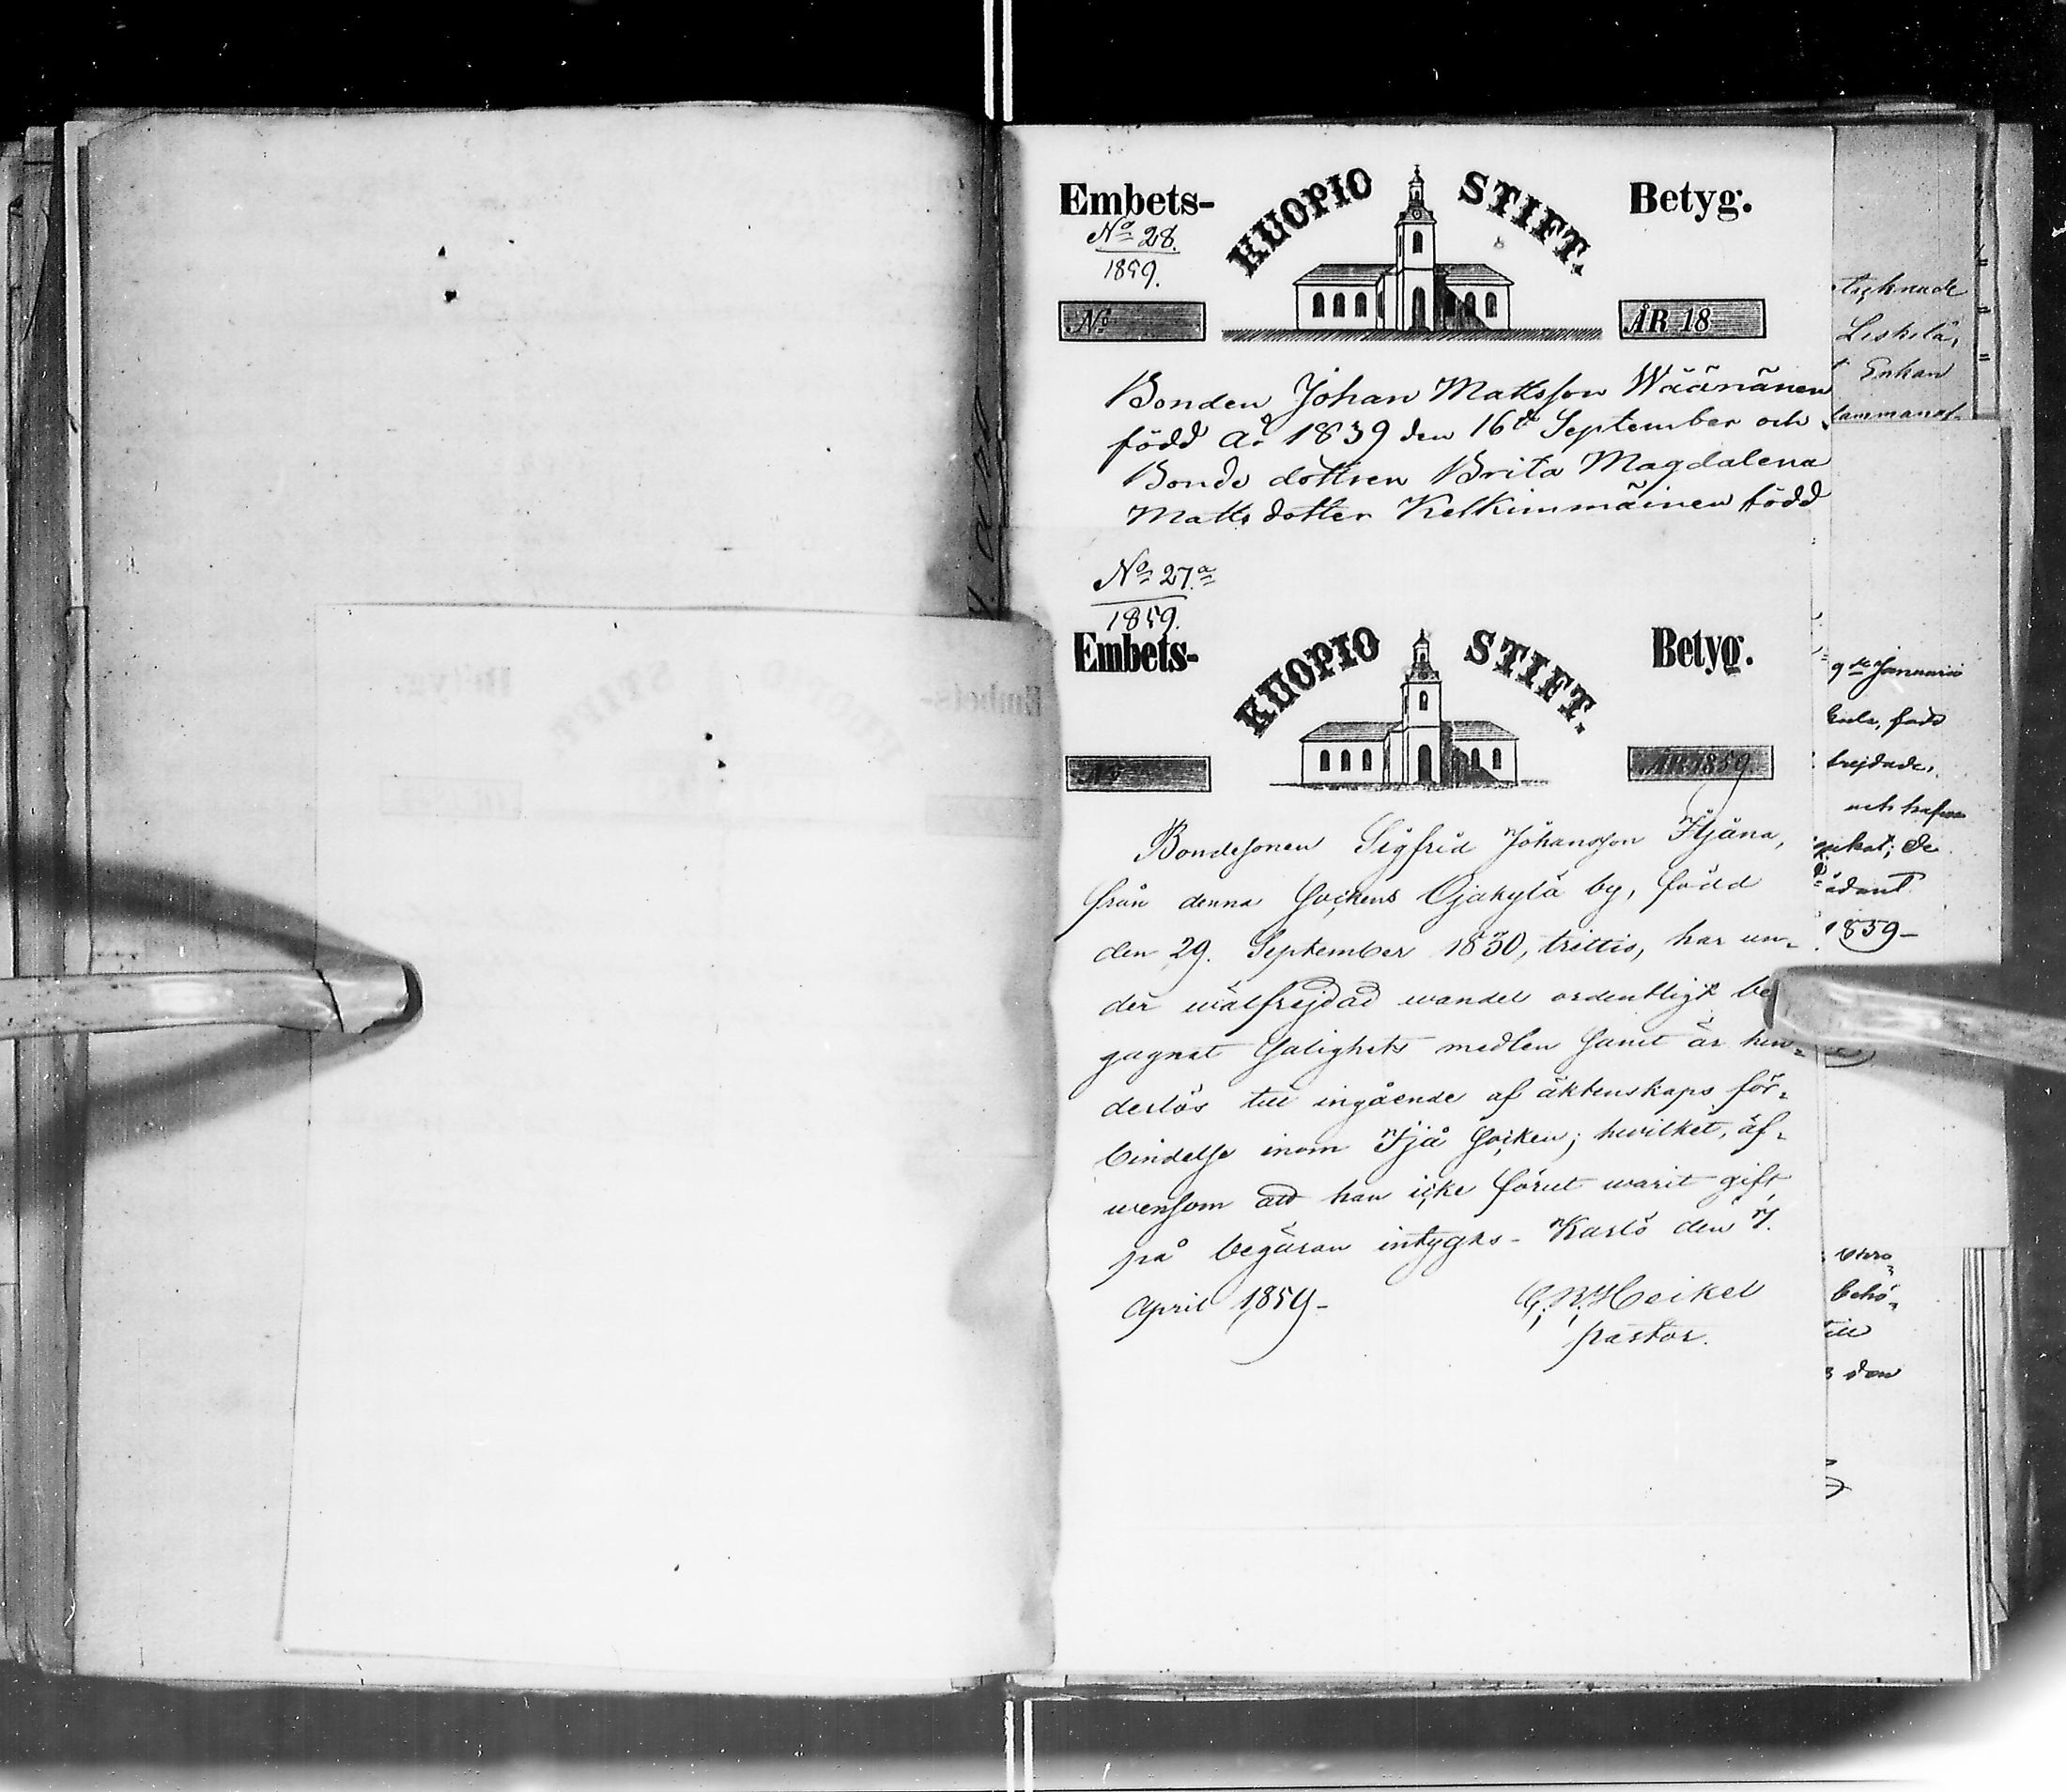 Embets- KUOPIO STIFT. Betyg.
No 28.
1859.
No ÅR 18
Bonden Johan Mattsson Wäänänen
född år 1839 den 16de September och
Bonde dottren Brita Magdalena
Matts dotter Kelkimmäinen född
No 27.a
1859.
Embets- KUOPIO STIFT. Betyg.
No ÅR 1859
Bondesonen Sigfrid Johansson Hjäna,
från denna Sockens Ojakylä by, född
den 29. September 1830, trettio, har un-
der wälfrejdad wandel ordentligt be
gagnat Salighets medlen samt är hin-
derlös till ingående af äktenskaps för-
bindelse inom Ijå Socken; hwilket, äf-
wensom att han icke förut warit gift,
på begäran intygas - Karlö den 7.
April 1859 -
Heikel
pastor.
Enkan
9de Januarii
född
och hafva
1859 -
behö-
till